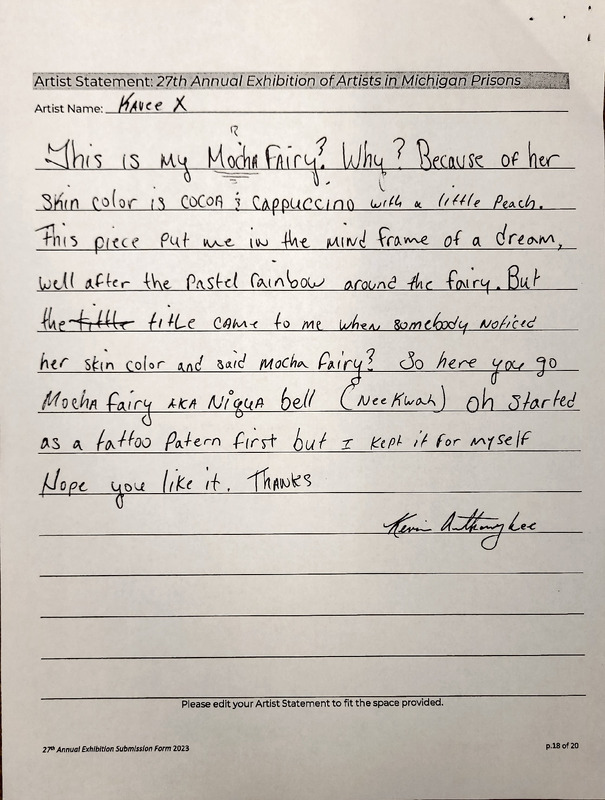 Artist Statement: 27th Annual Exhibition of Artists in Michigan Prisons
Artist Name: Kavee X
This is my Mocha Fairy? Why? Because of her
Skin color is cocoa & cappuccino with a little Peach.
This piece put me in the mind frame of a dream,
well after the Pastel rainbow around the fairy. But
the tittle titLe came to me when somebody noticed
her skin color and said Mocha Fairy? So here you go
Mocha fairy AKA Niqua bell (NeeKwah) oh started
as a tattoo Patern first but I kept it for myself
Hope you like it. Thanks
Kevin Anthony Lee
Please edit your Artist Statement to fit the space provided.
27th Annual Exhibition Submission Form 2023
p.18 of 20